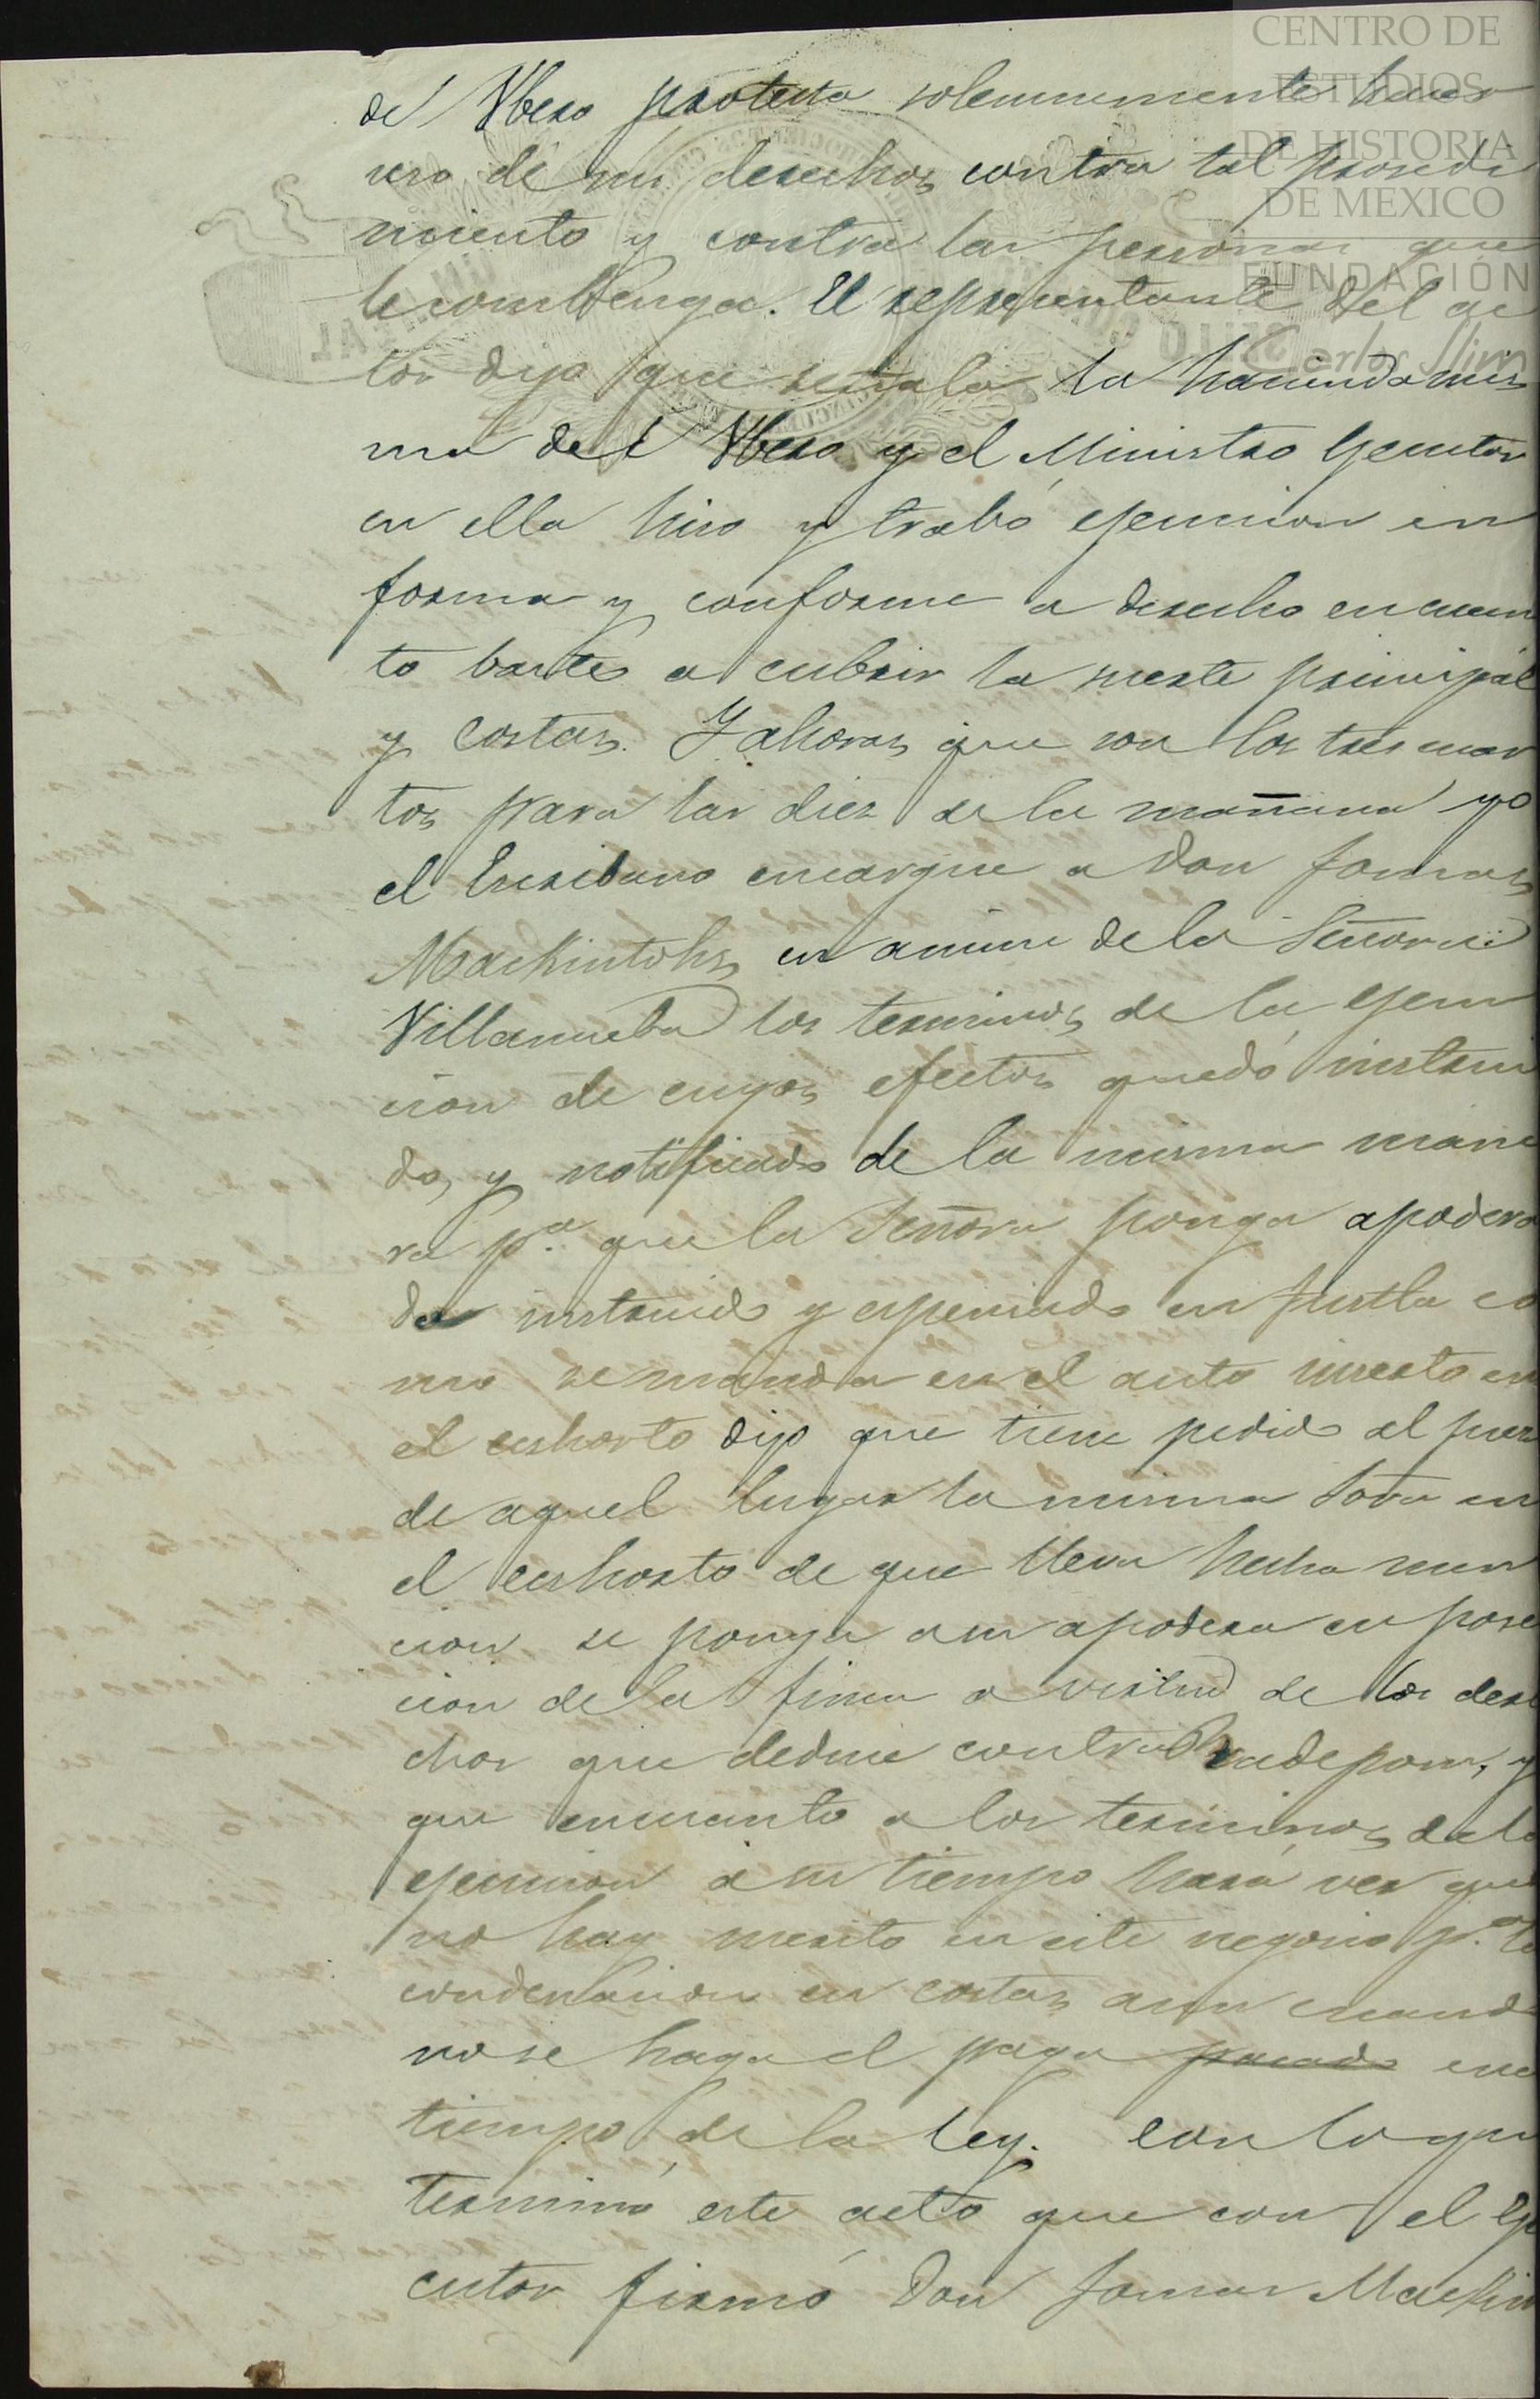 CENTRO DE
ESTUDIOS
DE HISTORIA
DE MEXICO
FUNDACIÓN
Carlos Slim
del Vbero protesta solemnemente hacer
uso de sus derechos contra tal prosedi
miento y contra las personas que
le combenga. El representante del ac
tor dijo que señala la hacienda mis
ma del Vbero y el Ministro Ejecutor
en ella hiso y trabó ejecucion en
forma y conforme a derecho en cuan
to baste a cubrir la suerte principal
y costas. Y ahoras que son los tres cuar
tos para las diez de la mañana yo
el Escribano encargue a Don Tomas
Mackintohs en a de la Señora
Villanueba los terminos de la ejecu
cion de cuyos efectos quedó instrui
do, y notificado de la misma mane
ra p.a que la Señora ponga apodera
do instruido y espensado en Justla co
mo se manda en el auto inserto en
el eshorto dijo que tiene pedido al juez
de aquel lugar la misma Sora en
el eshorto de que lleva hecha men
cion se ponga a su apodera en pose
cion de la finca a virtud de los dere
chos que deduce contra y
que encuanto a los terminos de la
ejecucion a su tiempo hará ver que
no hay merito en este negocio p.a la
condenacion en costas aun cuando
no se haga el pago pasado en el
tiempo de la ley. Con lo que
terminó este acto que con el Eje
cutor firmó Don Tomas Mackin